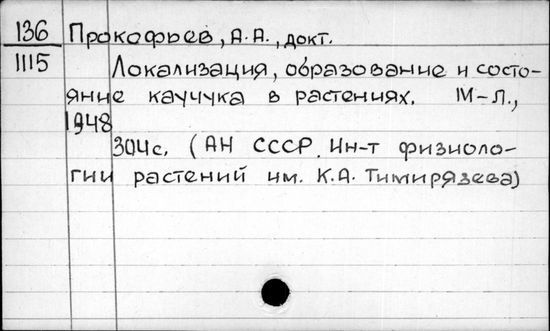 136 Прокофьев, А.А., докт.
1115 Локализация, образование и состо-
яние каучука в растениях. М-Л.,
1948
304с. (АН СССР. Ин-т физиоло-
гии растений им. К.А. Тимирязева)